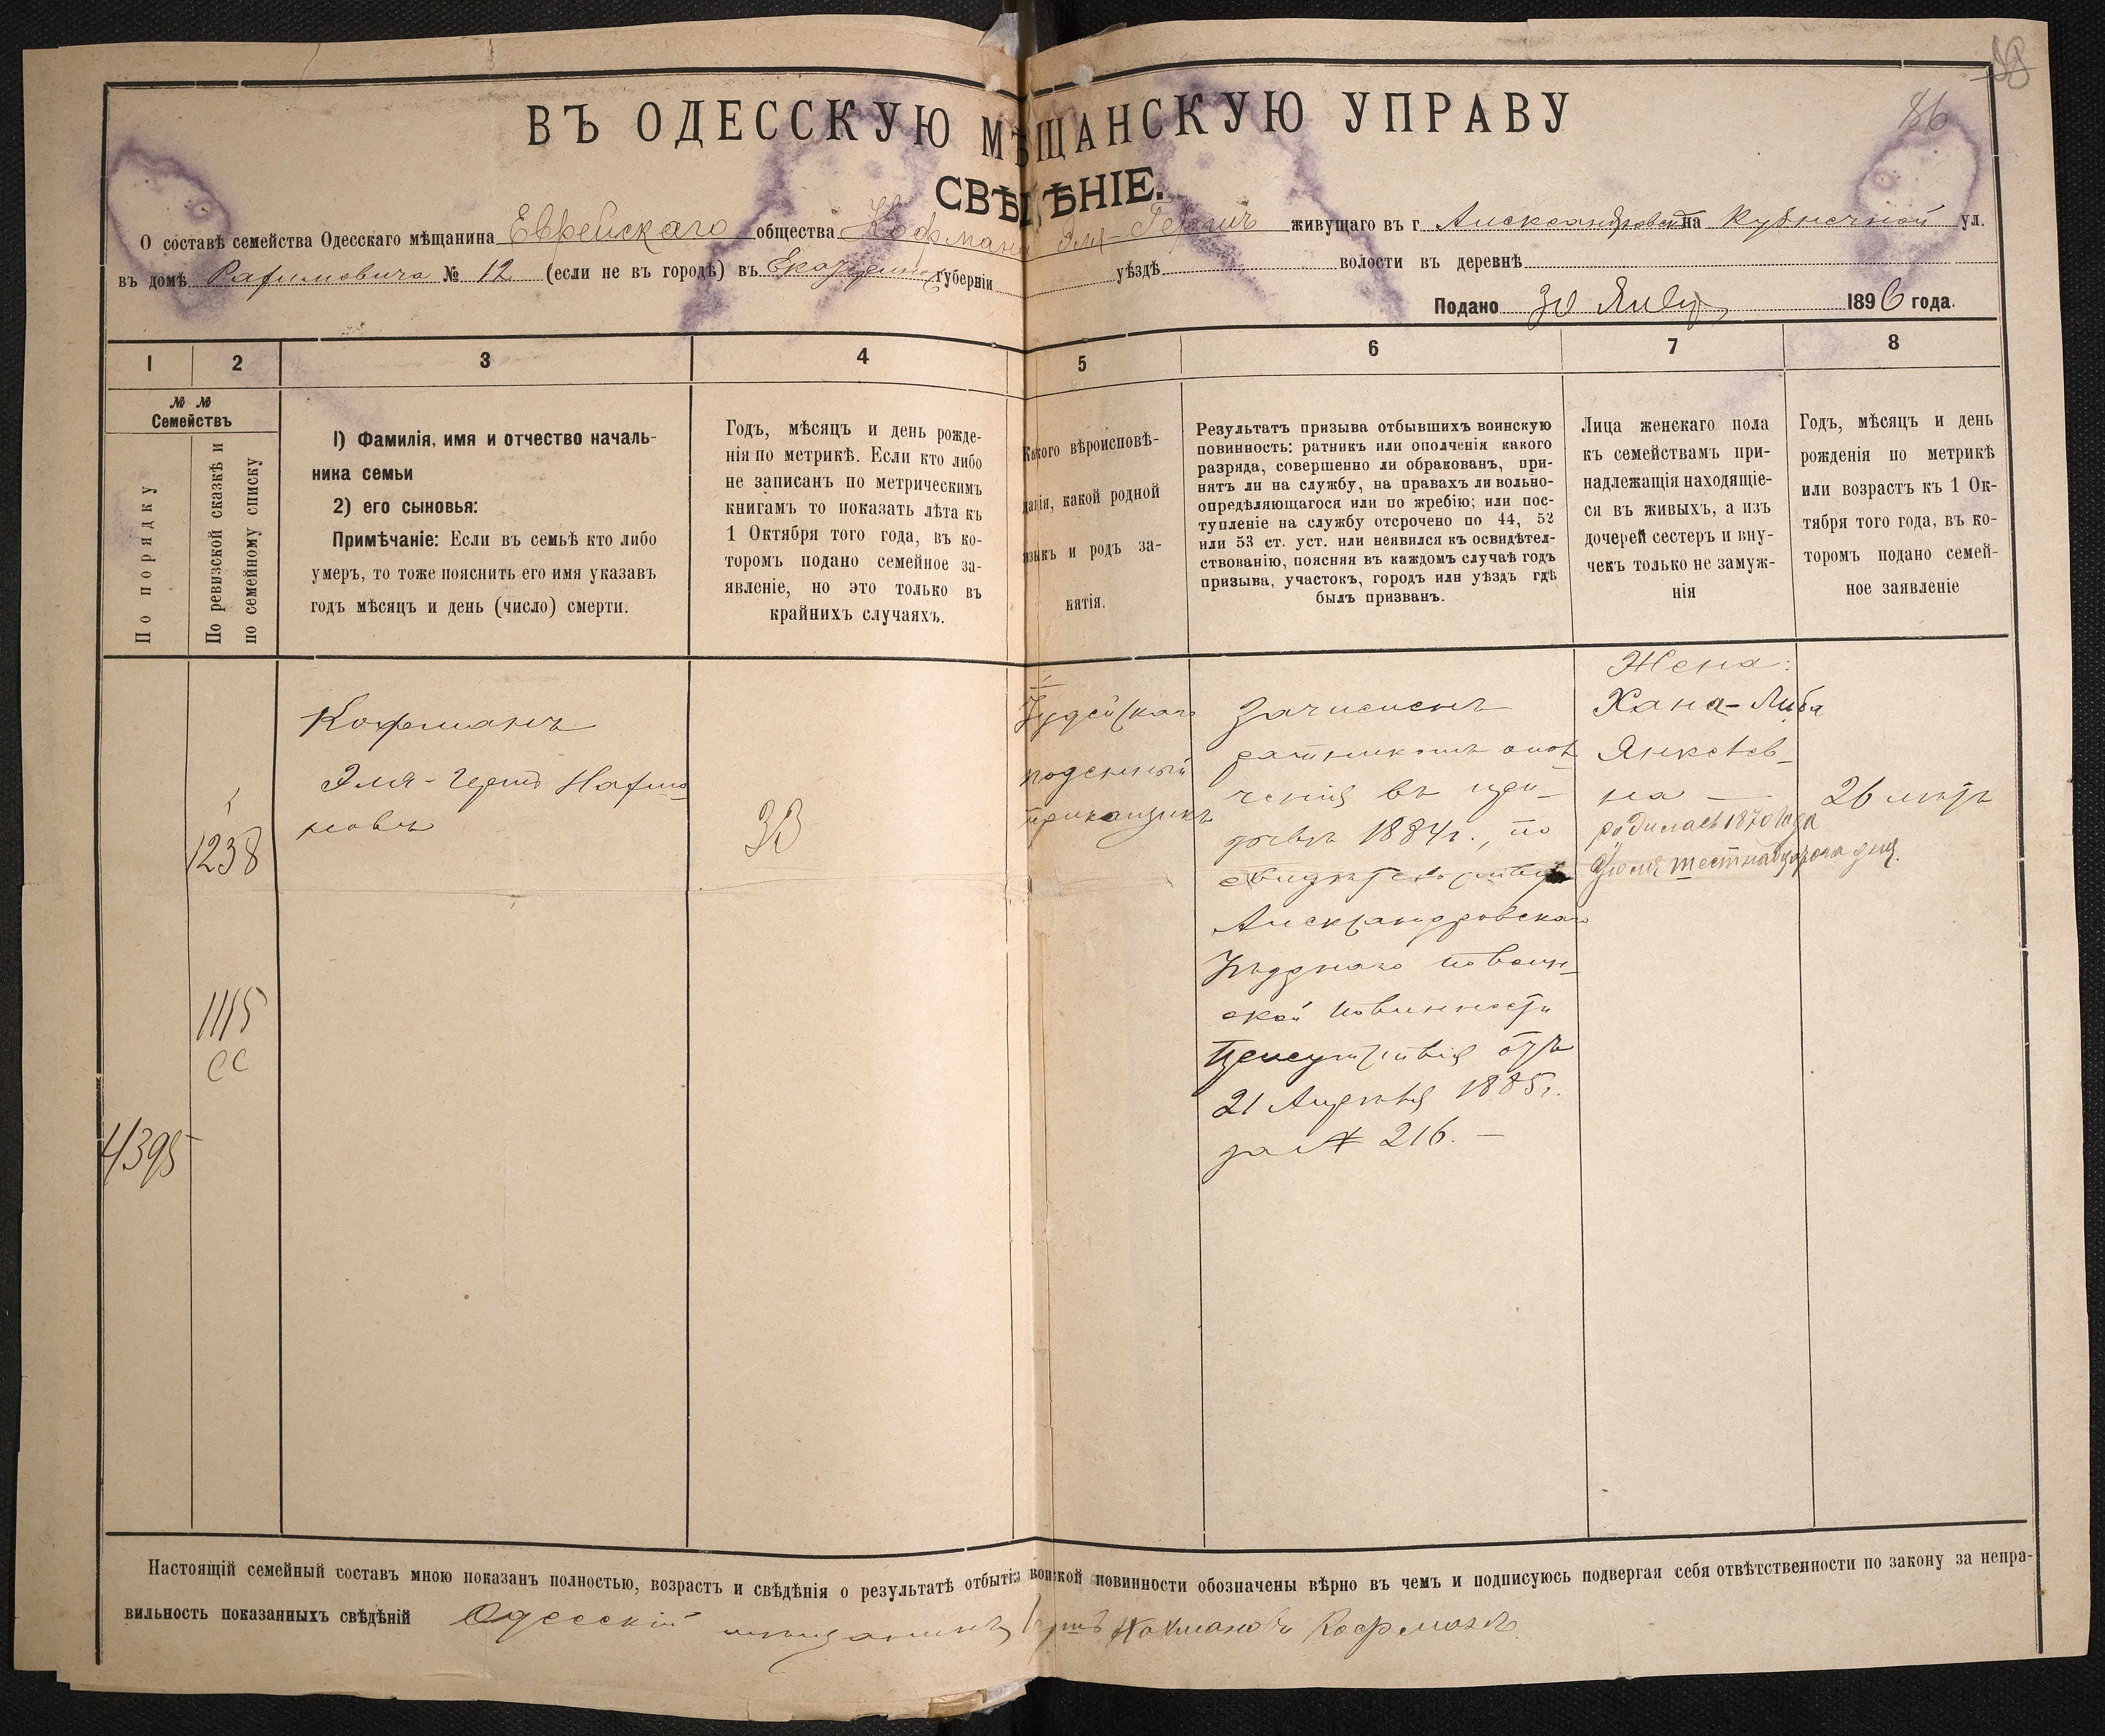 88
86
ВЪ ОДЕССКУЮ МѢЩАНСКУЮ УПРАВУ
СВѢДѢНІЕ.
О составѣ семейства Одесскаго мѣщанина Еврейскаго общества Кофмана Эля-Гершъ живущаго въ г Александровскѣ на Кузнечной ул.
въ домѣ № 12 (если не въ городѣ) въ губерніи уѣздѣ волости въ деревнѣ
Подано 30 Янв 1896 года.
1 2 3 4 5 6 7 8
№ № Семействъ
По порядку
По ревизской сказкѣ и по семейному списку
1) Фамилія, имя и отчество началь-
ника семьи
2) его сыновья:
Примѣчаніе: Если въ семьѣ кто либо
умеръ, то тоже пояснить его имя указавъ
годъ мѣсяцъ и день (число) смерти.
Годъ, мѣсяцъ и день рожде-
нія по метрикѣ. Если кто либо
не записанъ по метрическимъ
книгамъ то показать лѣта къ
1 Октября того года, въ ко-
торомъ подано семейное за-
явленіе, но это только въ
крайнихъ случаяхъ.
Какого вѣроисповѣ-
данія, какой родной
языкъ и родъ за-
нятія.
Результатъ призыва отбывшихъ воинскую
повинность: ратникъ или ополченія какого
разряда, совершенно ли обракованъ, при-
нятъ ли на службу, на правахъ ли вольно-
опредѣляющагося или по жребію; или пос-
тупленіе на службу отсрочено по 44, 52
или 53 ст. уст. или неявился къ освидѣтел-
ствованію, поясняя въ каждомъ случаѣ годъ
призыва, участокъ, городъ или уѣздъ гдѣ
былъ призванъ.
Лица женскаго пола
къ семействамъ при-
надлежащія находящіе-
ся въ живыхъ, а изъ
дочерей сестеръ и вну-
чекъ только не замуж-
нія
Годъ, мѣсяцъ и день
рожденія по метрикѣ
или возрастъ къ 1 Ок-
тября того года, въ ко-
торомъ подано семей-
ное заявленіе
1238
1115
сс
4398
Кофманъ
Эля-Гершъ Нахма
новъ
33
Іудейскаго
приказчикъ
Зачисленъ
ратникомъ опол
ченія въ при-
зывѣ 1884г., по
свидѣтельству
Александровскаго
Уѣзднаго по воин-
ской повинности
Присутствія отъ
21 Апрѣля 1885г.
за № 216. —
Жена:
Хана-Либа
Янкелев-
на —
родилась 1870 года
Іюля шестнадцатаго дня.
26 лѣтъ
Настоящій семейный составъ мною показанъ полностью, возрастъ и свѣдѣнія о результатѣ отбытія воинской повинности обозначены вѣрно въ чемъ и подписуюсь подвергая себя отвѣтственности по закону за непра-
вильность показанныхъ свѣдѣній Одесскій мѣщанинъ Гершъ Нахмановъ Кофманъ